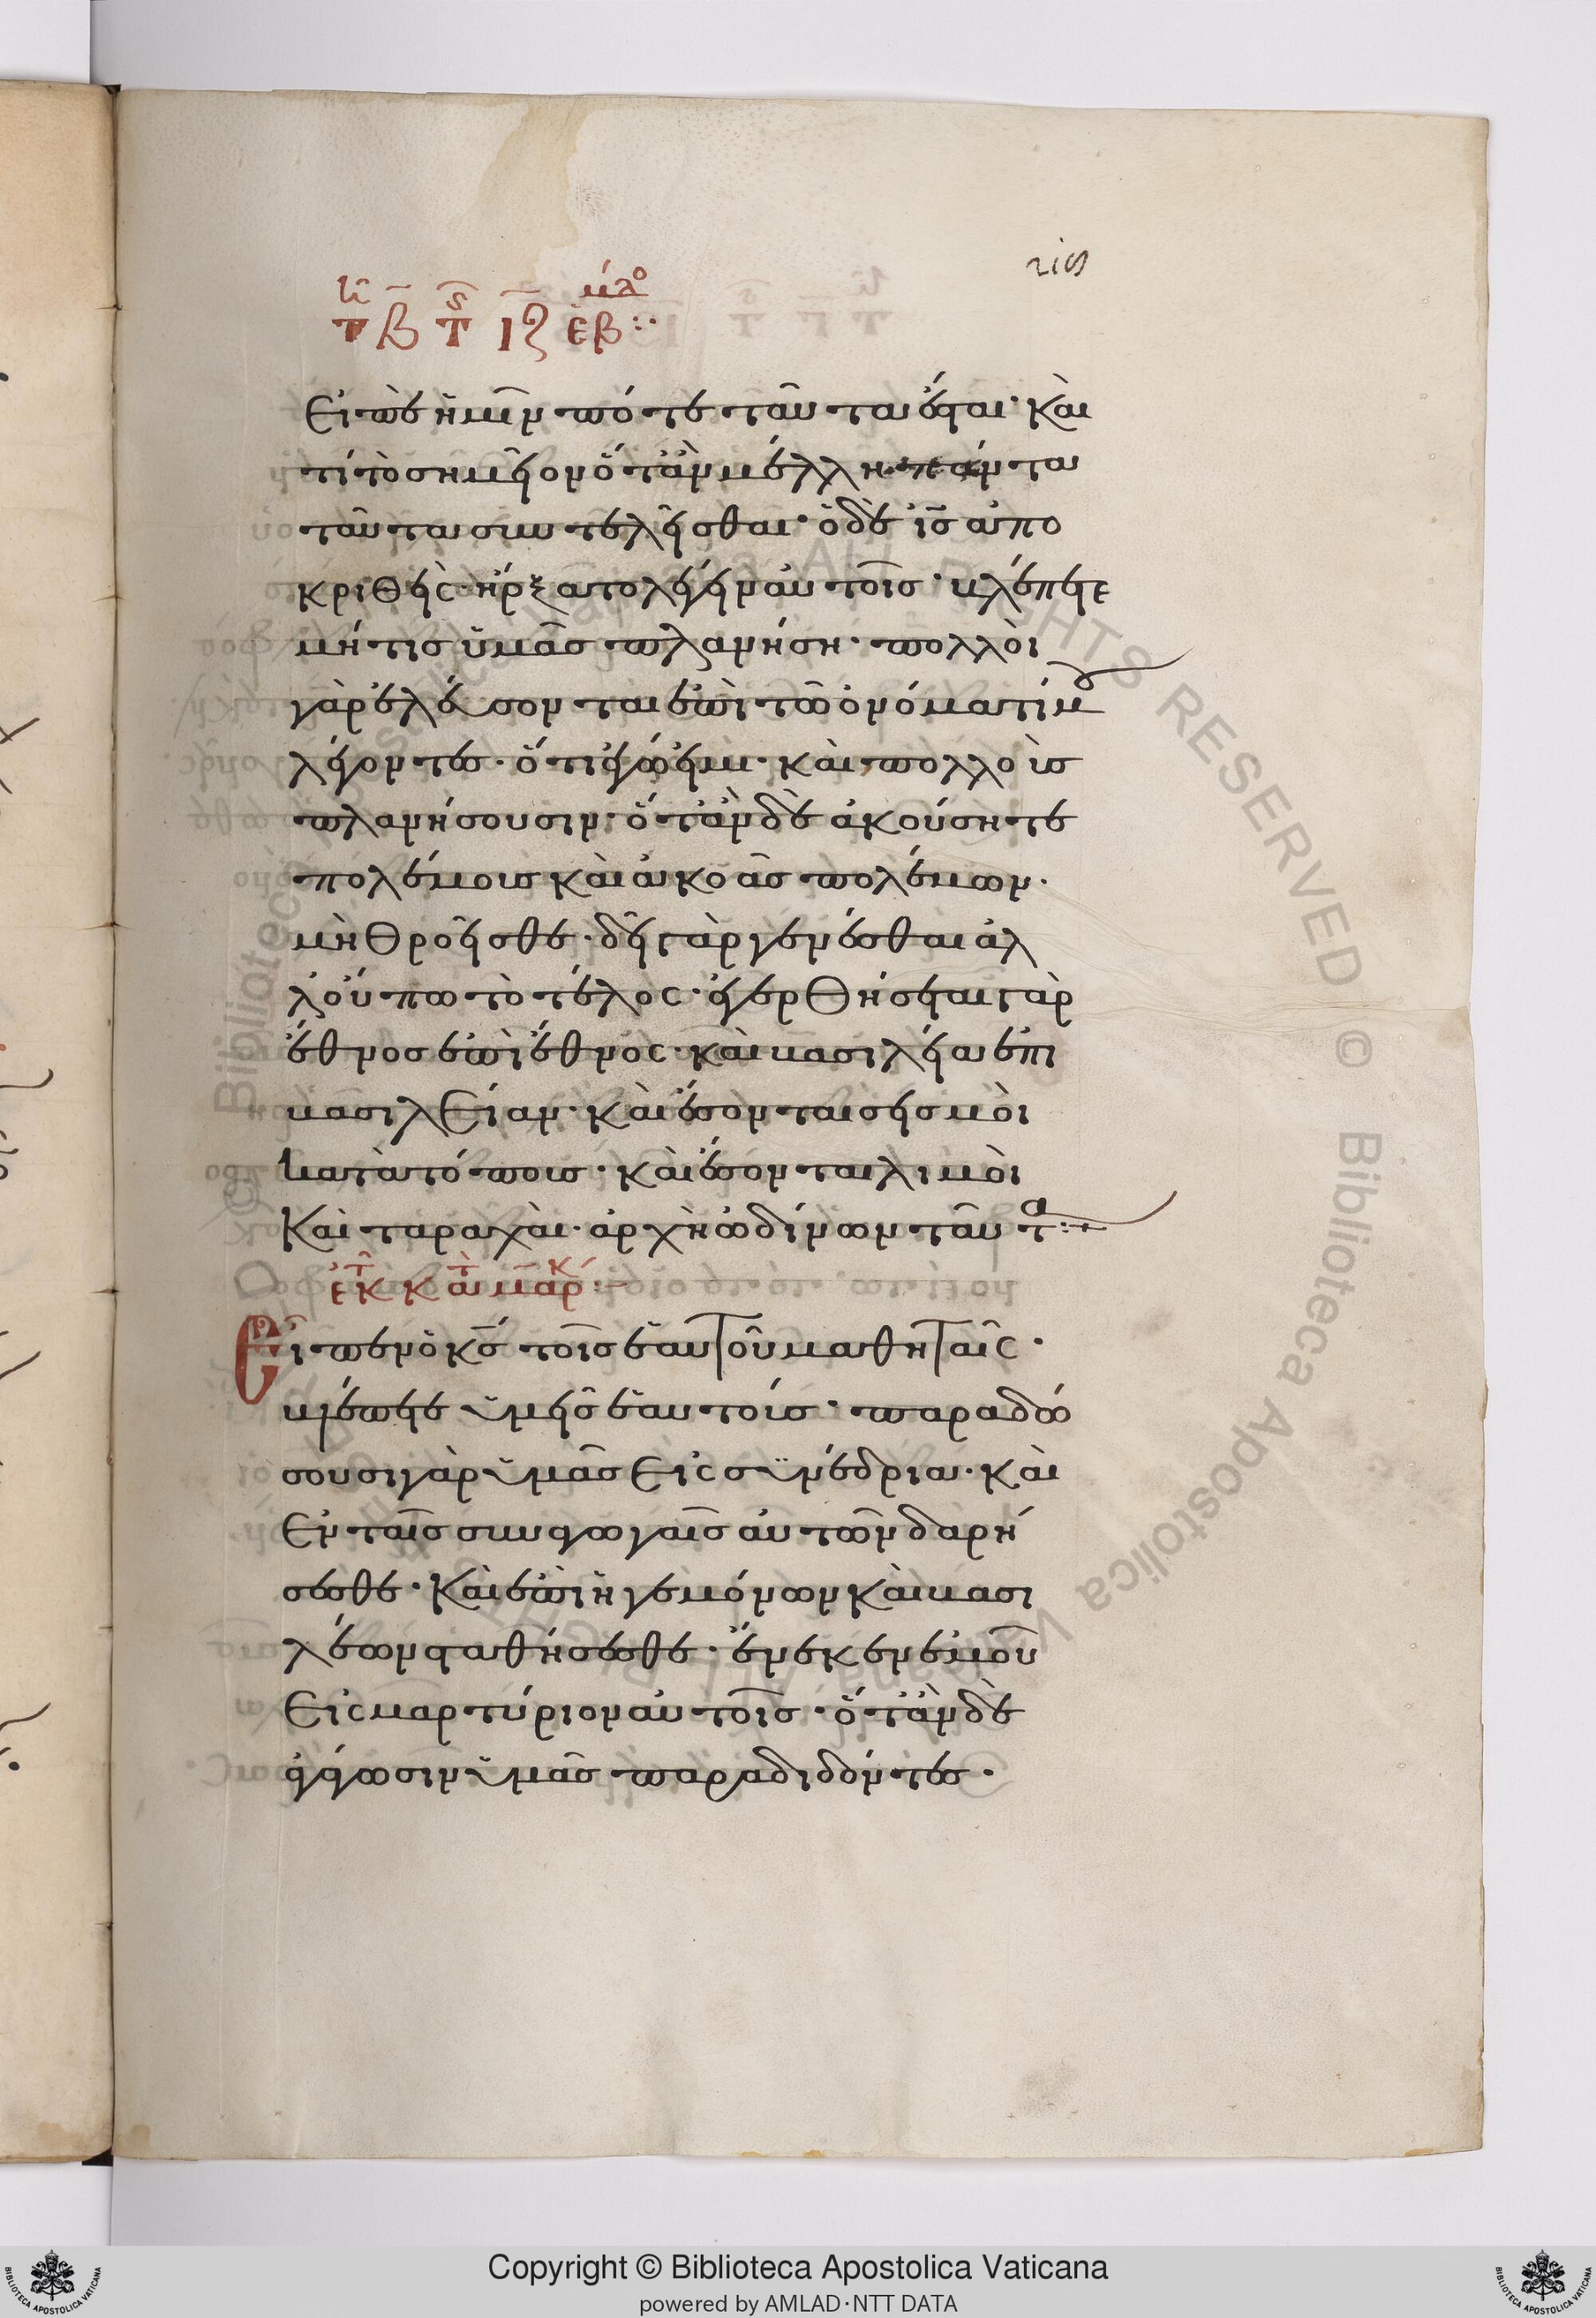 Εἰπὲ ἡμῖν πότε ταῦτα ἔσται· καὶ
τί τὸ σημεῖον ὅτἂν μέλλη πάντα
ταῦτα συντελεῖσθαι· ὁ δὲ ις̅ ἀπο
κριθεὶς· ἤρξατο λέγειν αὐτοῖσ· βλέπετε
μή τισ ὑμᾶσ πλανήση· πολλοὶ
γὰρ ἐλεύσονται ἐπὶ τῶ ὀνόματί μου
λέγοντεσ· ὅτι ἐγώ εἰμι· καὶ πολλοὺσ
πλανήσουσιν· ὅτἂν δὲ ἀκούσητε
πολέμουσ καὶ ἀκοὰσ πολέμων·
μὴ θροεῖσθε· δεῖ γὰρ γενέσθαι ἀλ
λ' οὔπω τὸ τέλος· ἐγερθήσεται γὰρ
ἔθνοσ ἐπὶ ἔθνος· καὶ βασιλεία ἐπι
βασιλείαν· καὶ ἔσονται σεισμοὶ
κατὰ τόπουσ· καὶ ἔσονται λιμοὶ
Καὶ ταραχὰι· ἀρχὴ ὠδίνων ταῦτα:
ἐκ τ κατ μαρκ
Εἶπεν ὁ κς̅ τοῖσ ἑαυτοῦ μαθηταῖς·
βλέπετε ὑμεῖσ ἑαυτούσ· παραδώ
σουσι γὰρ ὑμᾶσ εἰς συνέδρια· καὶ
ἐν ταῖσ συναγωγαῖσ αὐτῶν δαρή
σεσθε· Καὶ ἐπὶ ἡγεμόνων καὶ βασι
λέων σταθήσεσθε· ἕνεκεν ἐμοῦ
εἰς μαρτύριον αὐτοῖσ· ὅτἂν δὲ
ἄγωσιν ὑμᾶσ παραδιδόντεσ·
Copyright © Biblioteca Apostolica Vaticana
powered by AMLAD·NTT DATA